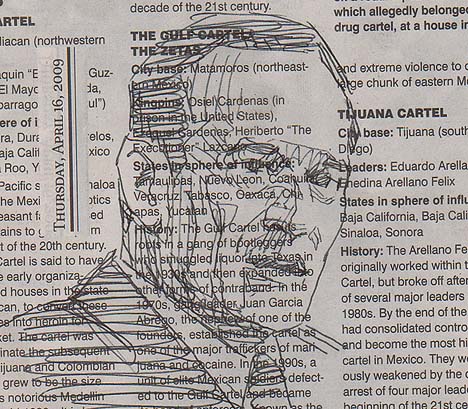 decade of the 21st century.
THE GULF CARTEL/
THE ZETAS
City base: Matamoros (northeast-
ern Mexico)
Kingpins: Osiel Cardenas (in
prison in the United States),
Ezequel Cardenas, Heriberto "The
Executioner" Lazcano
States in sphere of influence:
Tamaulipas, Nuevo Leon, Coahuila,
Veracruz, Tabasco, Oaxaca, Chi-
apas, Yucatan
History: The Gulf Cartel has its
roots in a gang of bootleggers
who smuggled liquor into Texas in
the 1930s and then expanded to
other forms of contraband. In the
1970s, gang leader Juan Garcia
Abrego, the nephew of one of the
founders, established the cartel as
one of the major traffickers of mari
juana and cocaine. In the 1990s, a
unit of elite Mexican soldiers defect-
ed to the Gulf Cartel and became
known as the
THURSDAY, APRIL 16, 2009
ARTEL
liacan (northwestern
aquin "E Guz-
El Mayo
parrago ul")
ere of i
ra, Dura elos,
aja Cali xico
Roo, Y
Pacific s naloa
the Mexi otics
easant fa
tains to g
rt of the 20th century.
Cartel is said to have
e early organiza-
d houses in the state
can, to convert these
ies into heroin for
ket. The cartel was
inate the subsequent
ijuana and Colombian
grew to be the size
s notorious Medellin
which allegedly belonged
drug cartel, at a house in
and extreme violence to c
large chunk of eastern Me
TIJUANA CARTEL
City base: Tijuana (south
Diego)
Leaders: Eduardo Arella
Enedina Arellano Felix
States in sphere of influ
Baja California, Baja Cali
Sinaloa, Sonora
History: The Arellano Fe
originally worked within t
Cartel, but broke off after
of several major leaders
1980s. By the end of the
had consolidated contro
and become the most hi
cartel in Mexico. They we
ously weakened by the c
arrest of four major leade
beginning of the 21st ce